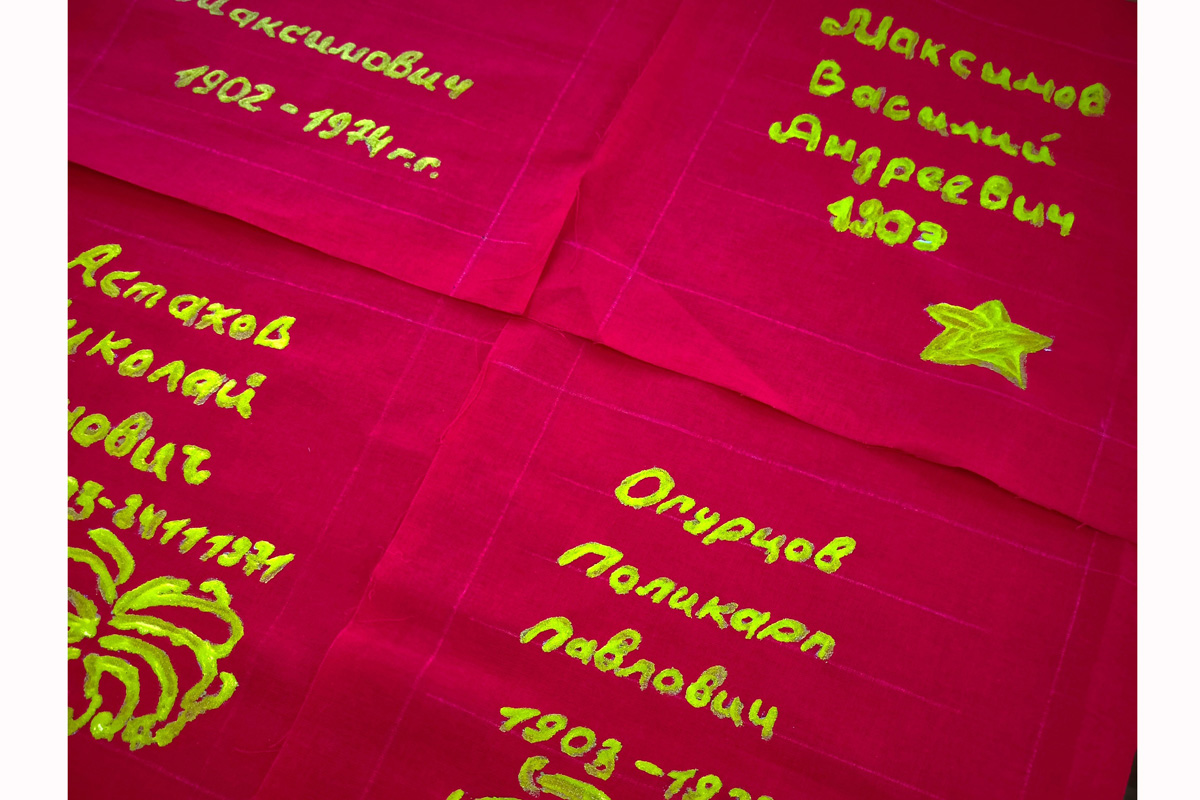 Максимович
1902 - 1974 г.г.
Максимов
Василий
Андреевич
1903
Астахов
иколай
нович
03-24111971
Огурцов
Поликарп
Павлович
1903-197